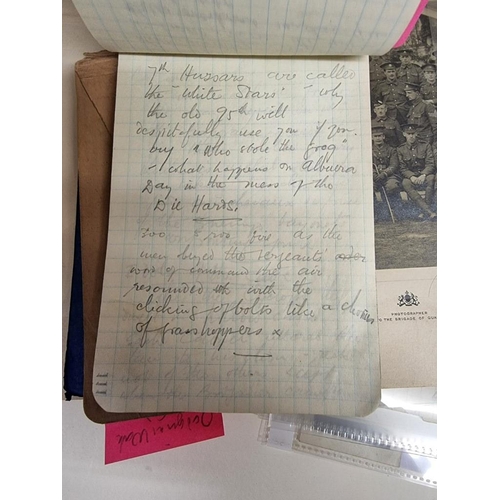 7th Hussars are called
the "White Stars" - why
the old 95th will
despitefully use you if you
buy "Who stole the grog"
- what happens on Albuera
Day in the mess of the
Die Hards.
as the
men obeyed the Sergeants'
word of command the air
resounded with the
clicking of bolts like a chorus
of grasshoppers x
PHOTOGRAPHER
THE BRIGADE OF GU